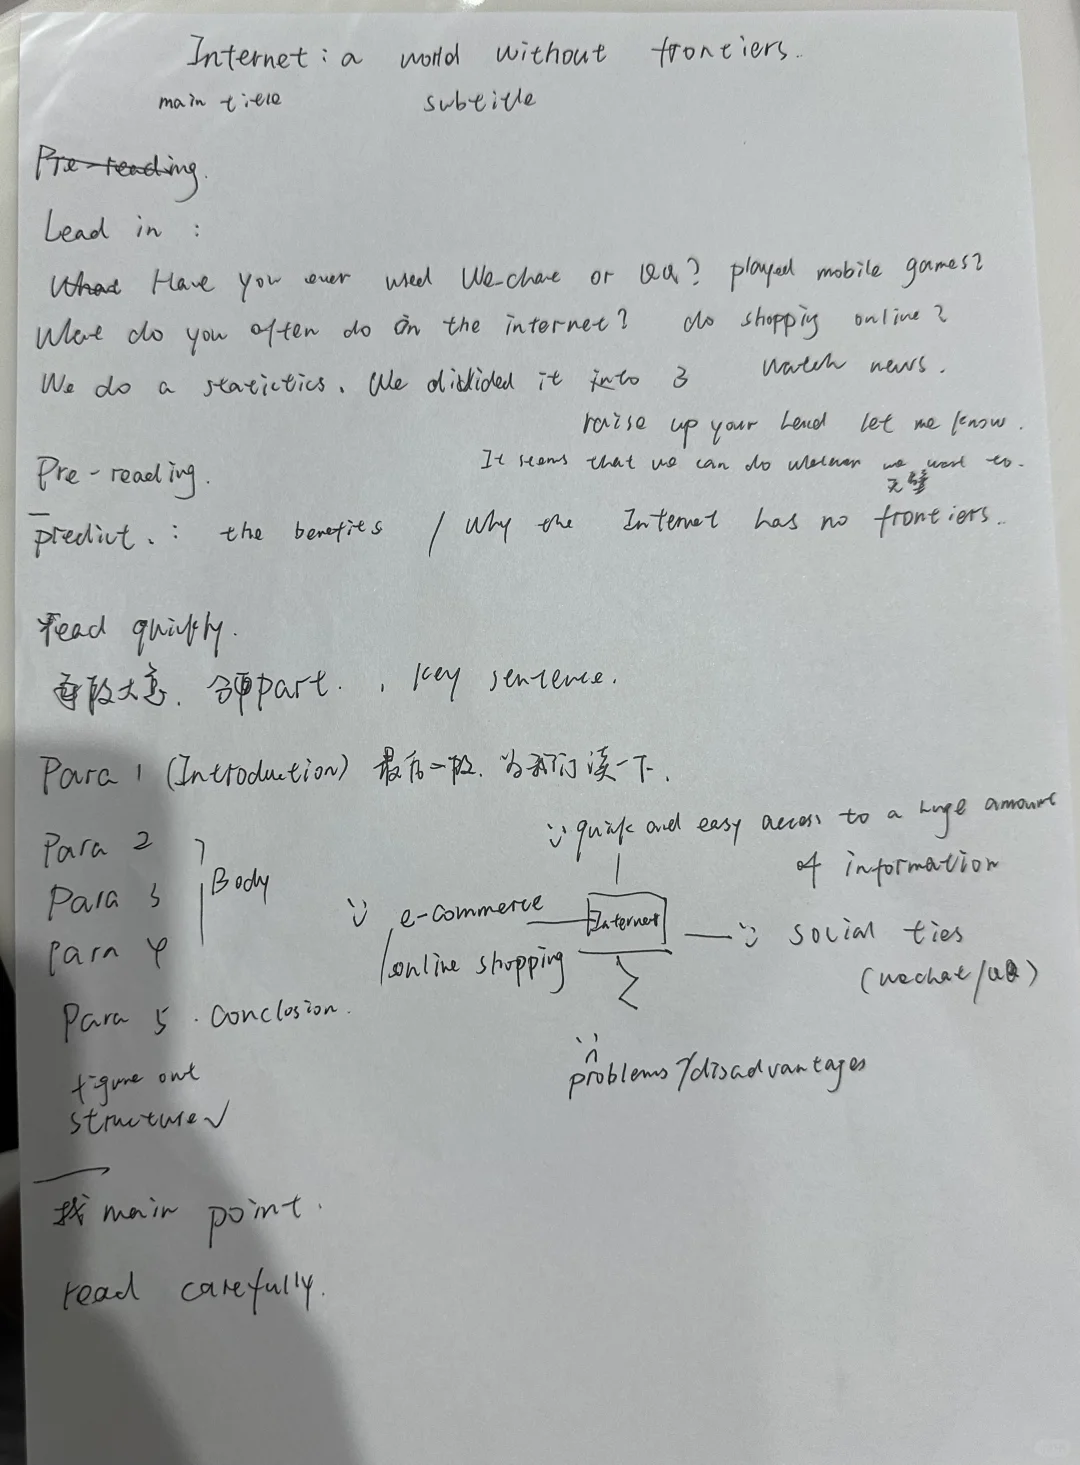 Internet : a world without frontiers.
main title subtitle
Pre-reading.
Lead in :
What Have you ever used We-chat or QQ? played mobile games?
What do you often do on the internet? do shoppig online?
We do a statictics. We divided it into 3 watch news.
raise up your hand let me know.
It seems that we can do whatever we want to.
Pre-reading.
predict. : the benefits / Why the Internet has no frontiers..
read quickly.
每段大意. part. , key sentence.
Para 1 (Introduction) 最后一段. 为我们读一下.
quick and easy access to a huge amount
of information
Para 2
Para 3
Para 4
Body
e-commerce
/online shopping
Internet
social ties
(wechat/QQ)
Para 5. Conclosion.
problems/disadvantages
figure out
structure✓
找 main point.
read carefully.